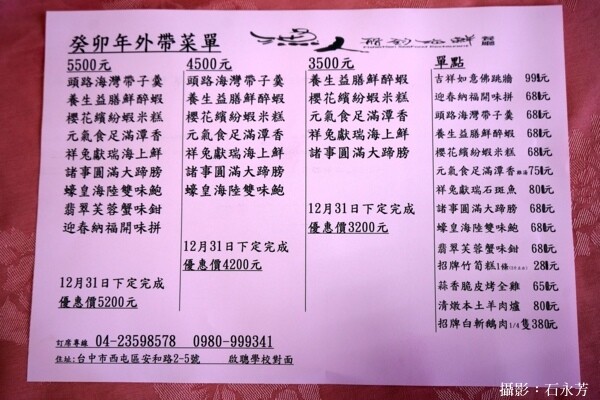 癸卯年外帶菜單
漁人
餐廳
5500元
頭路海灣帶子羹
養生益膳鮮醉蝦
櫻花繽紛蝦米糕
元氣食足滿潭香
祥兔獻瑞海上鮮
諸事圓滿大蹄膀
蠔皇海陸雙味鮑
翡翠芙蓉蟹味鉗
迎春納福開味拼
12月31日下定完成
優惠價5200元
4500元
頭路海灣帶子羹
養生益膳鮮醉蝦
櫻花繽紛蝦米糕
元氣食足滿潭香
祥兔獻瑞海上鮮
諸事圓滿大蹄膀
蠔皇海陸雙味鮑
12月31日下定完成
優惠價4200元
3500元
養生益膳鮮醉蝦
櫻花繽紛蝦米糕
元氣食足滿潭香
祥兔獻瑞海上鮮
諸事圓滿大蹄膀
12月31日下定完成
優惠價3200元
單點
吉祥如意佛跳牆
迎春納福開味拼 680元
頭路海灣帶子羹 680元
養生益膳鮮醉蝦 680元
櫻花繽紛蝦米糕 680元
元氣食足滿潭香 750元
祥兔獻瑞石斑魚 800元
諸事圓滿大蹄膀 680元
蠔皇海陸雙味鮑 680元
翡翠芙蓉蟹味鉗 680元
招牌竹筍糕1條 280元
蒜香脆皮烤全雞 650元
清燉本土羊肉爐 800元
招牌白斬鵝肉1/4隻380元
訂席專線 04-23598578 0980-999341
住址:台中市西屯區安和路2-5號 啟聰學校對面
攝影：石永芳